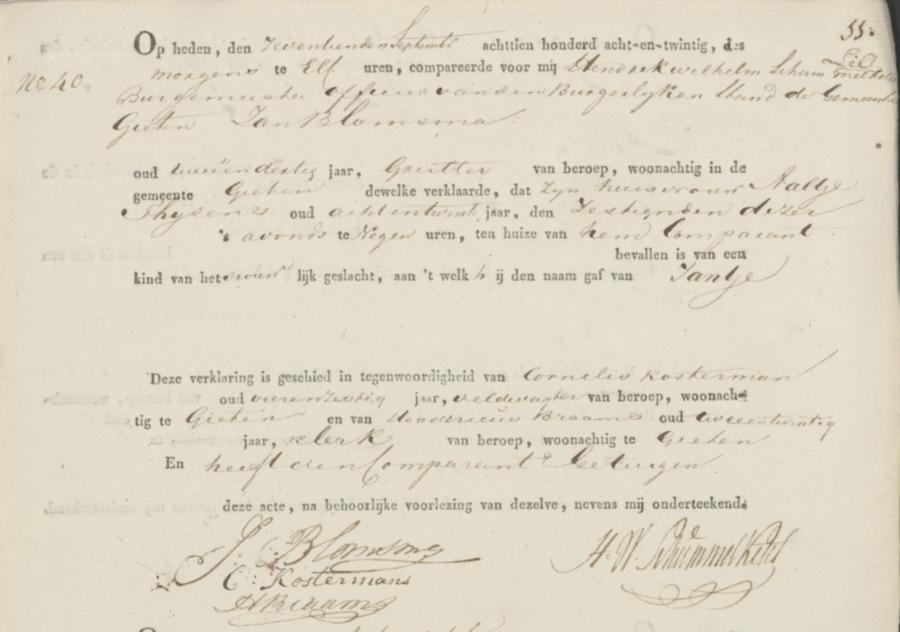 55.
Op heden, den Zeventienden September achttien honderd acht-en-twintig, des
No 40 morgens te Elf uren, compareerde voor mij Hendrik Wilhelm Schummelketel
Burgemeester officier van den Burgerlyken Stand der Gemeente
Gieten Jan Blomsma
oud tweeendertig jaar, Grutter van beroep, woonachtig in de
gemeente Gieten dewelke verklaarde, dat zyn huisvrouw Aaltje
Thyssens oud achtentwintig jaar, den Zestienden dezer
's avonds te Negen uren, ten huize van hem Comparant
bevallen is van een
kind van het vrouwlijk geslacht, aan 't welk hij den naam gaf van Jantje
Deze verklaring is geschied in tegenwoordigheid van Cornelis Kosterman
oud vierenzestig jaar, veldwagter van beroep, woonach-
tig te Gieten en van Hendericus Braams oud tweeentwintig
jaar, klerk van beroep, woonachtig te Gieten
En heeft den Comparant & Getuigen
deze acte, na behoorlijke voorlezing van dezelve, nevens mij onderteekend.
J. Blomsma H. W. Schummelketel
C. Kostermans
H Braams